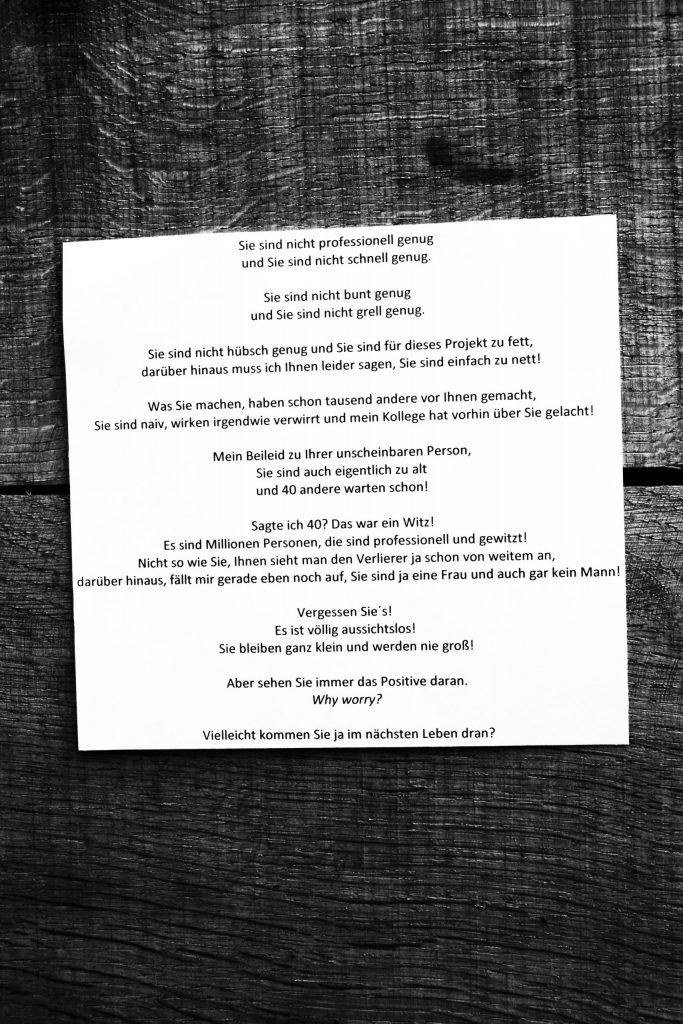 Sie sind nicht professionell genug
und Sie sind nicht schnell genug.
Sie sind nicht bunt genug
und Sie sind nicht grell genug.
Sie sind nicht hübsch genug und Sie sind für dieses Projekt zu fett,
darüber hinaus muss ich Ihnen leider sagen, Sie sind einfach zu nett!
Was Sie machen, haben schon tausend andere vor Ihnen gemacht,
Sie sind naiv, wirken irgendwie verwirrt und mein Kollege hat vorhin über Sie gelacht!
Mein Beileid zu Ihrer unscheinbaren Person,
Sie sind auch eigentlich zu alt
und 40 andere warten schon!
Sagte ich 40? Das war ein Witz!
Es sind Millionen Personen, die sind professionell und gewitzt!
Nicht so wie Sie, Ihnen sieht man den Verlierer ja schon von weitem an,
darüber hinaus, fällt mir gerade eben noch auf, Sie sind ja eine Frau und auch gar kein Mann!
Vergessen Sie´s!
Es ist völlig aussichtslos!
Sie bleiben ganz klein und werden nie groß!
Aber sehen Sie immer das Positive daran.
Why worry?
Vielleicht kommen Sie ja im nächsten Leben dran?